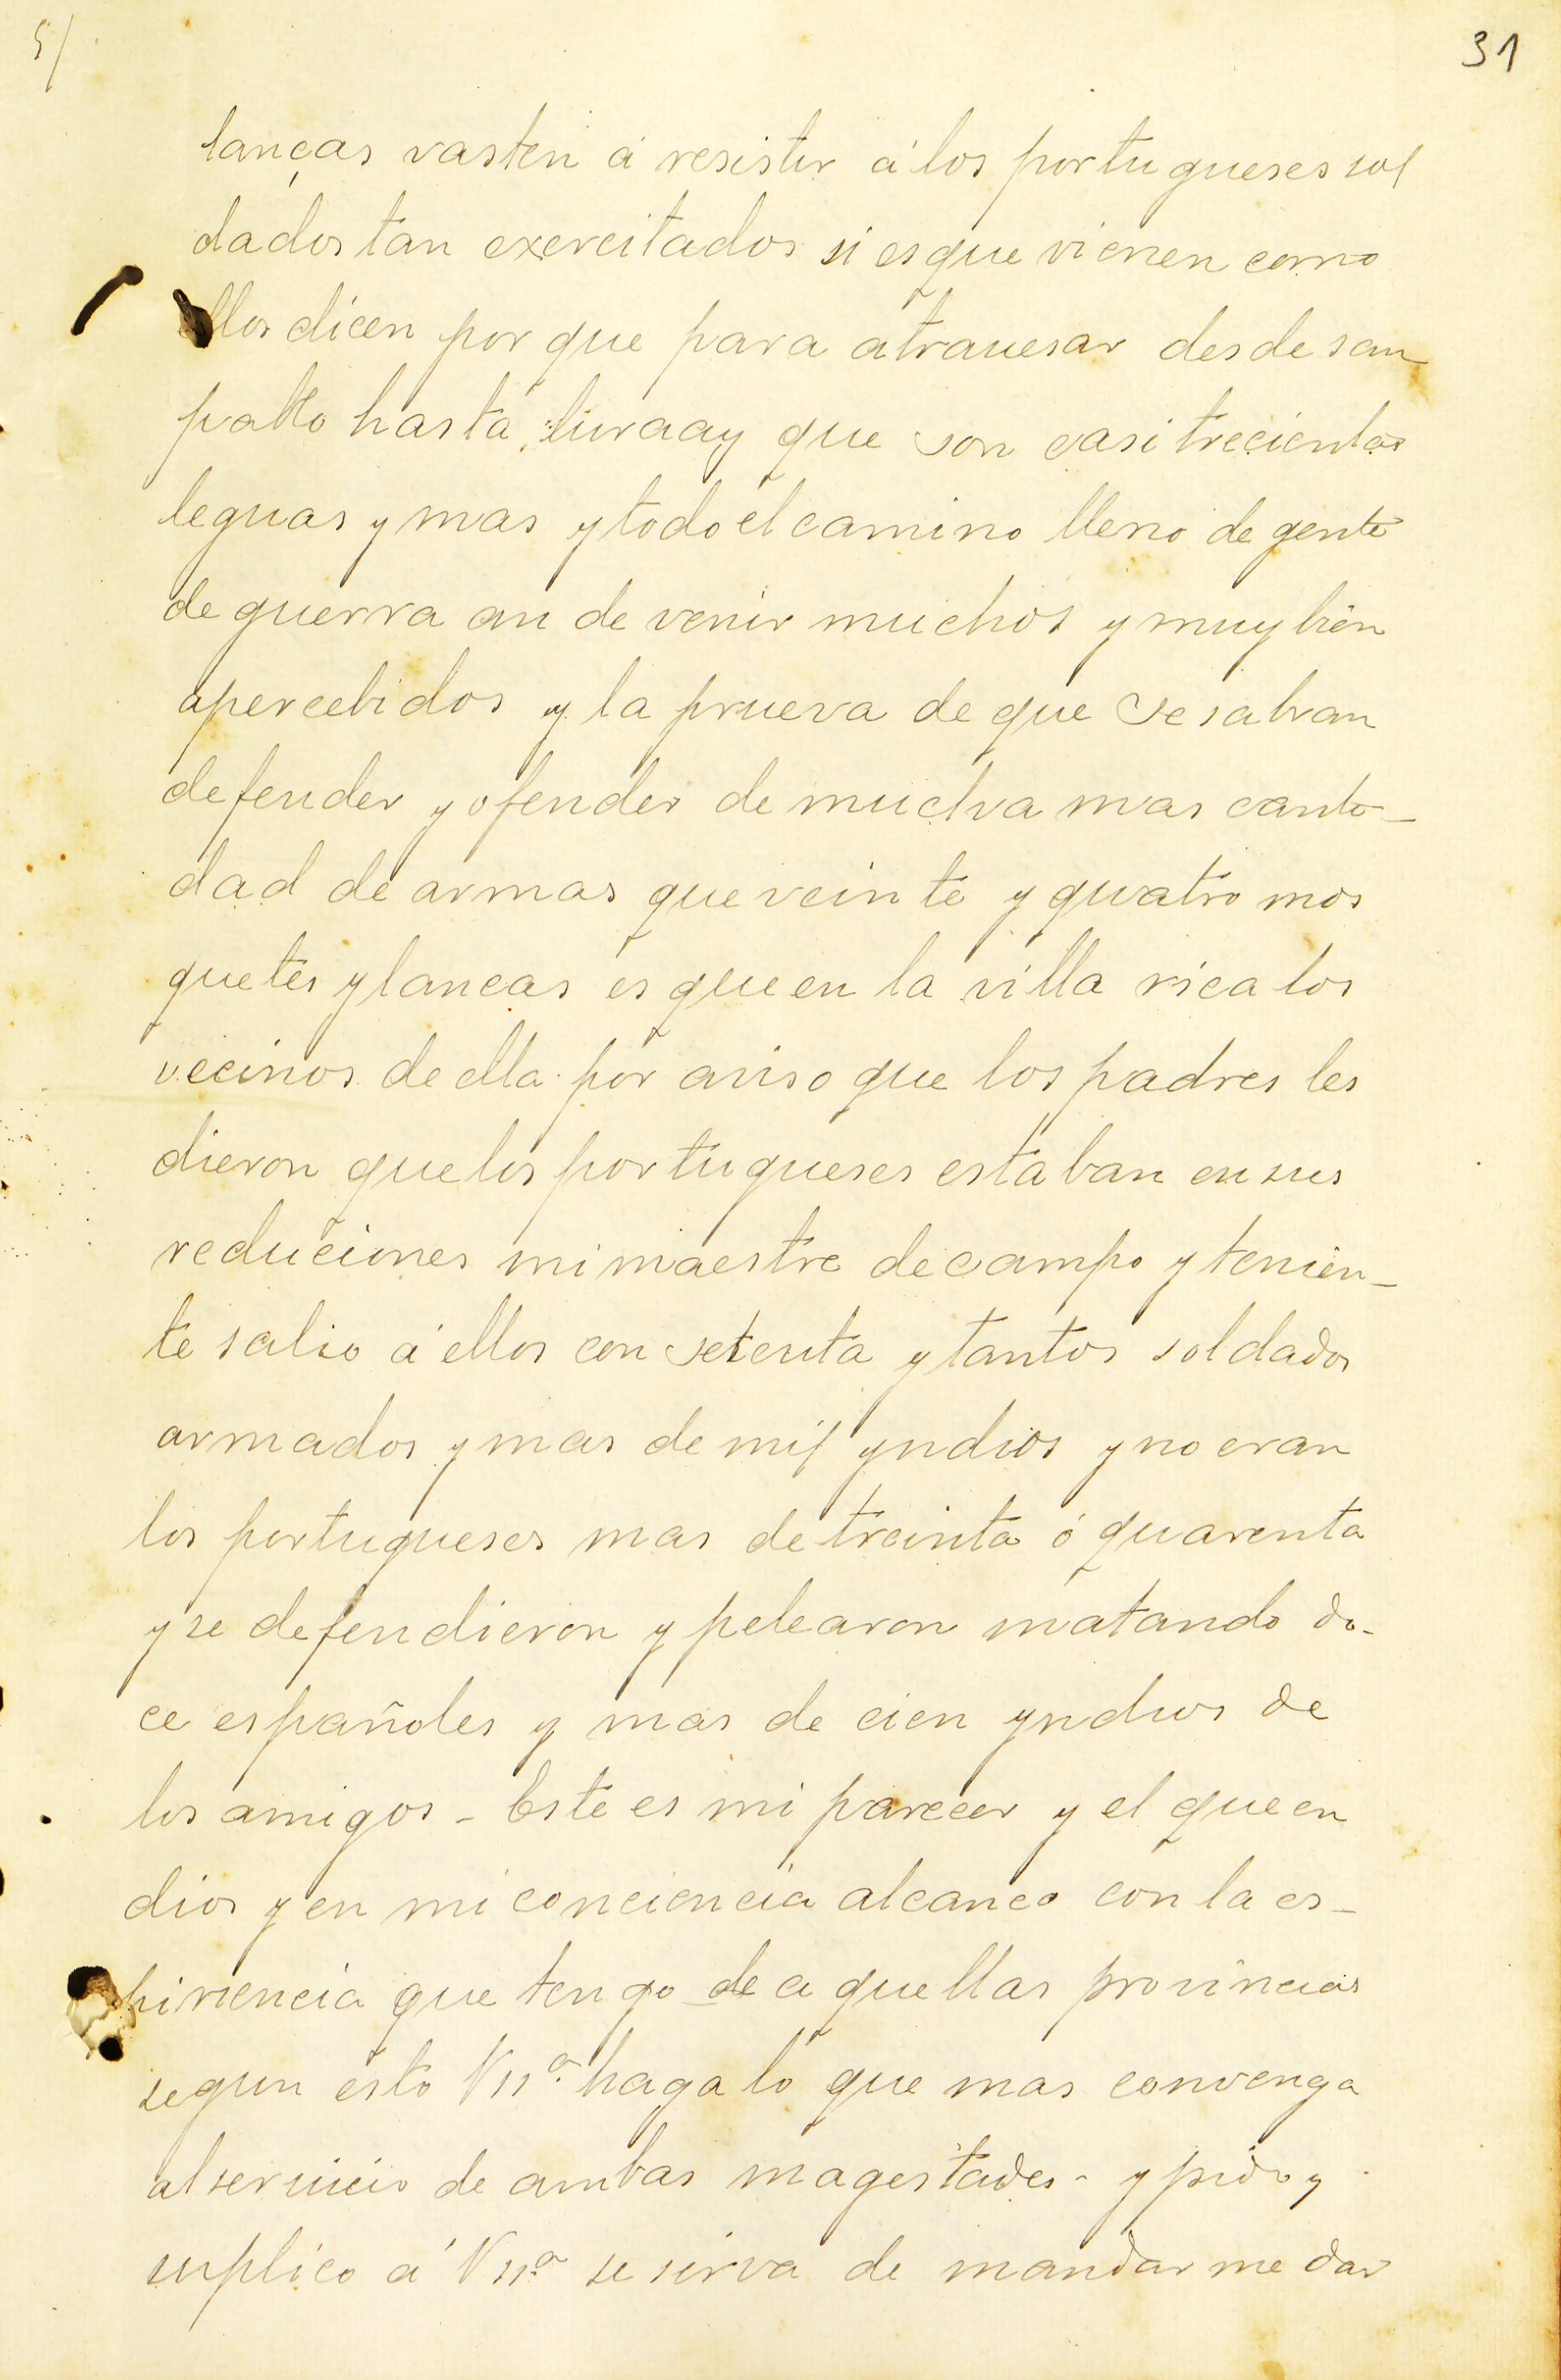 5/
31
lanças vasten á resistir á los portugueses sol
dados tan exercitados si es que vienen como
ellos dicen por que para atrauesar desde san
pablo hasta que son casi trecientas
leguas y mas y todo el camino lleno de gente
de guerra an de venir muchos y muy bien
apercebidos y la prueva de que se sabran
defender y ofender de mucha mas canti-
dad de armas que veinte y quatro mos
quetes y lancas es que en la villa rica los
vecinos de ella por aviso que los padres les
dieron que los portugueses estaban en sus
reduciones mi maestre de campo y tenien-
te salio á ellos con setenta y tantos soldados
armados y mas de mil yndios y no eran
los portugueses mas de treinta ó quarenta
y se defendieron y pelearon matando do-
ce españoles y mas de cien yndios de
los amigos - Este es mi parecer y el que en
dios y en mi conciencia alcanco con la es-
piriencia que tengo de aquellas provincias
segun esto Vssª. haga lo que mas convenga
al seruicio de ambas magestades - y pido y
suplico á Vssª. se sirva de mandar me dar